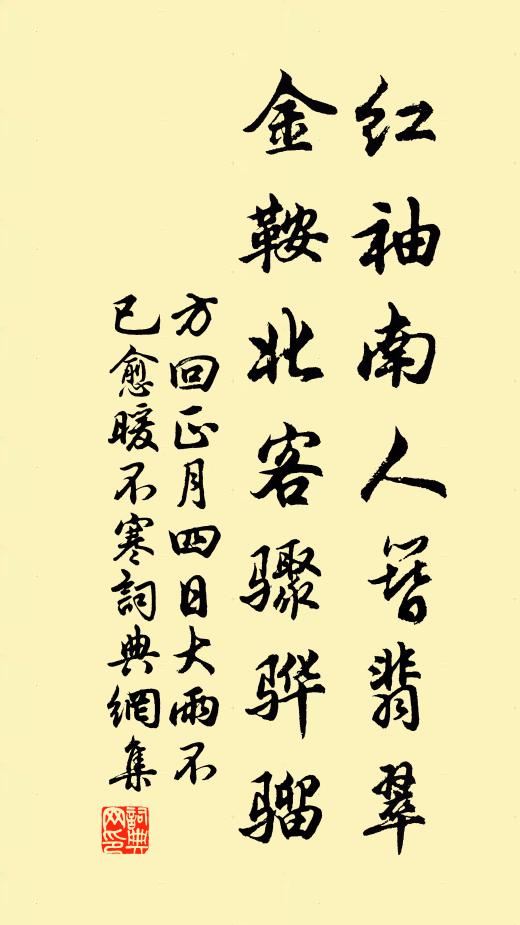 红袖南人簪翡翠
金鞍北客骤骅骝
方回正月四日大雨不
已愈暖不寒詞典網集
詞典网印